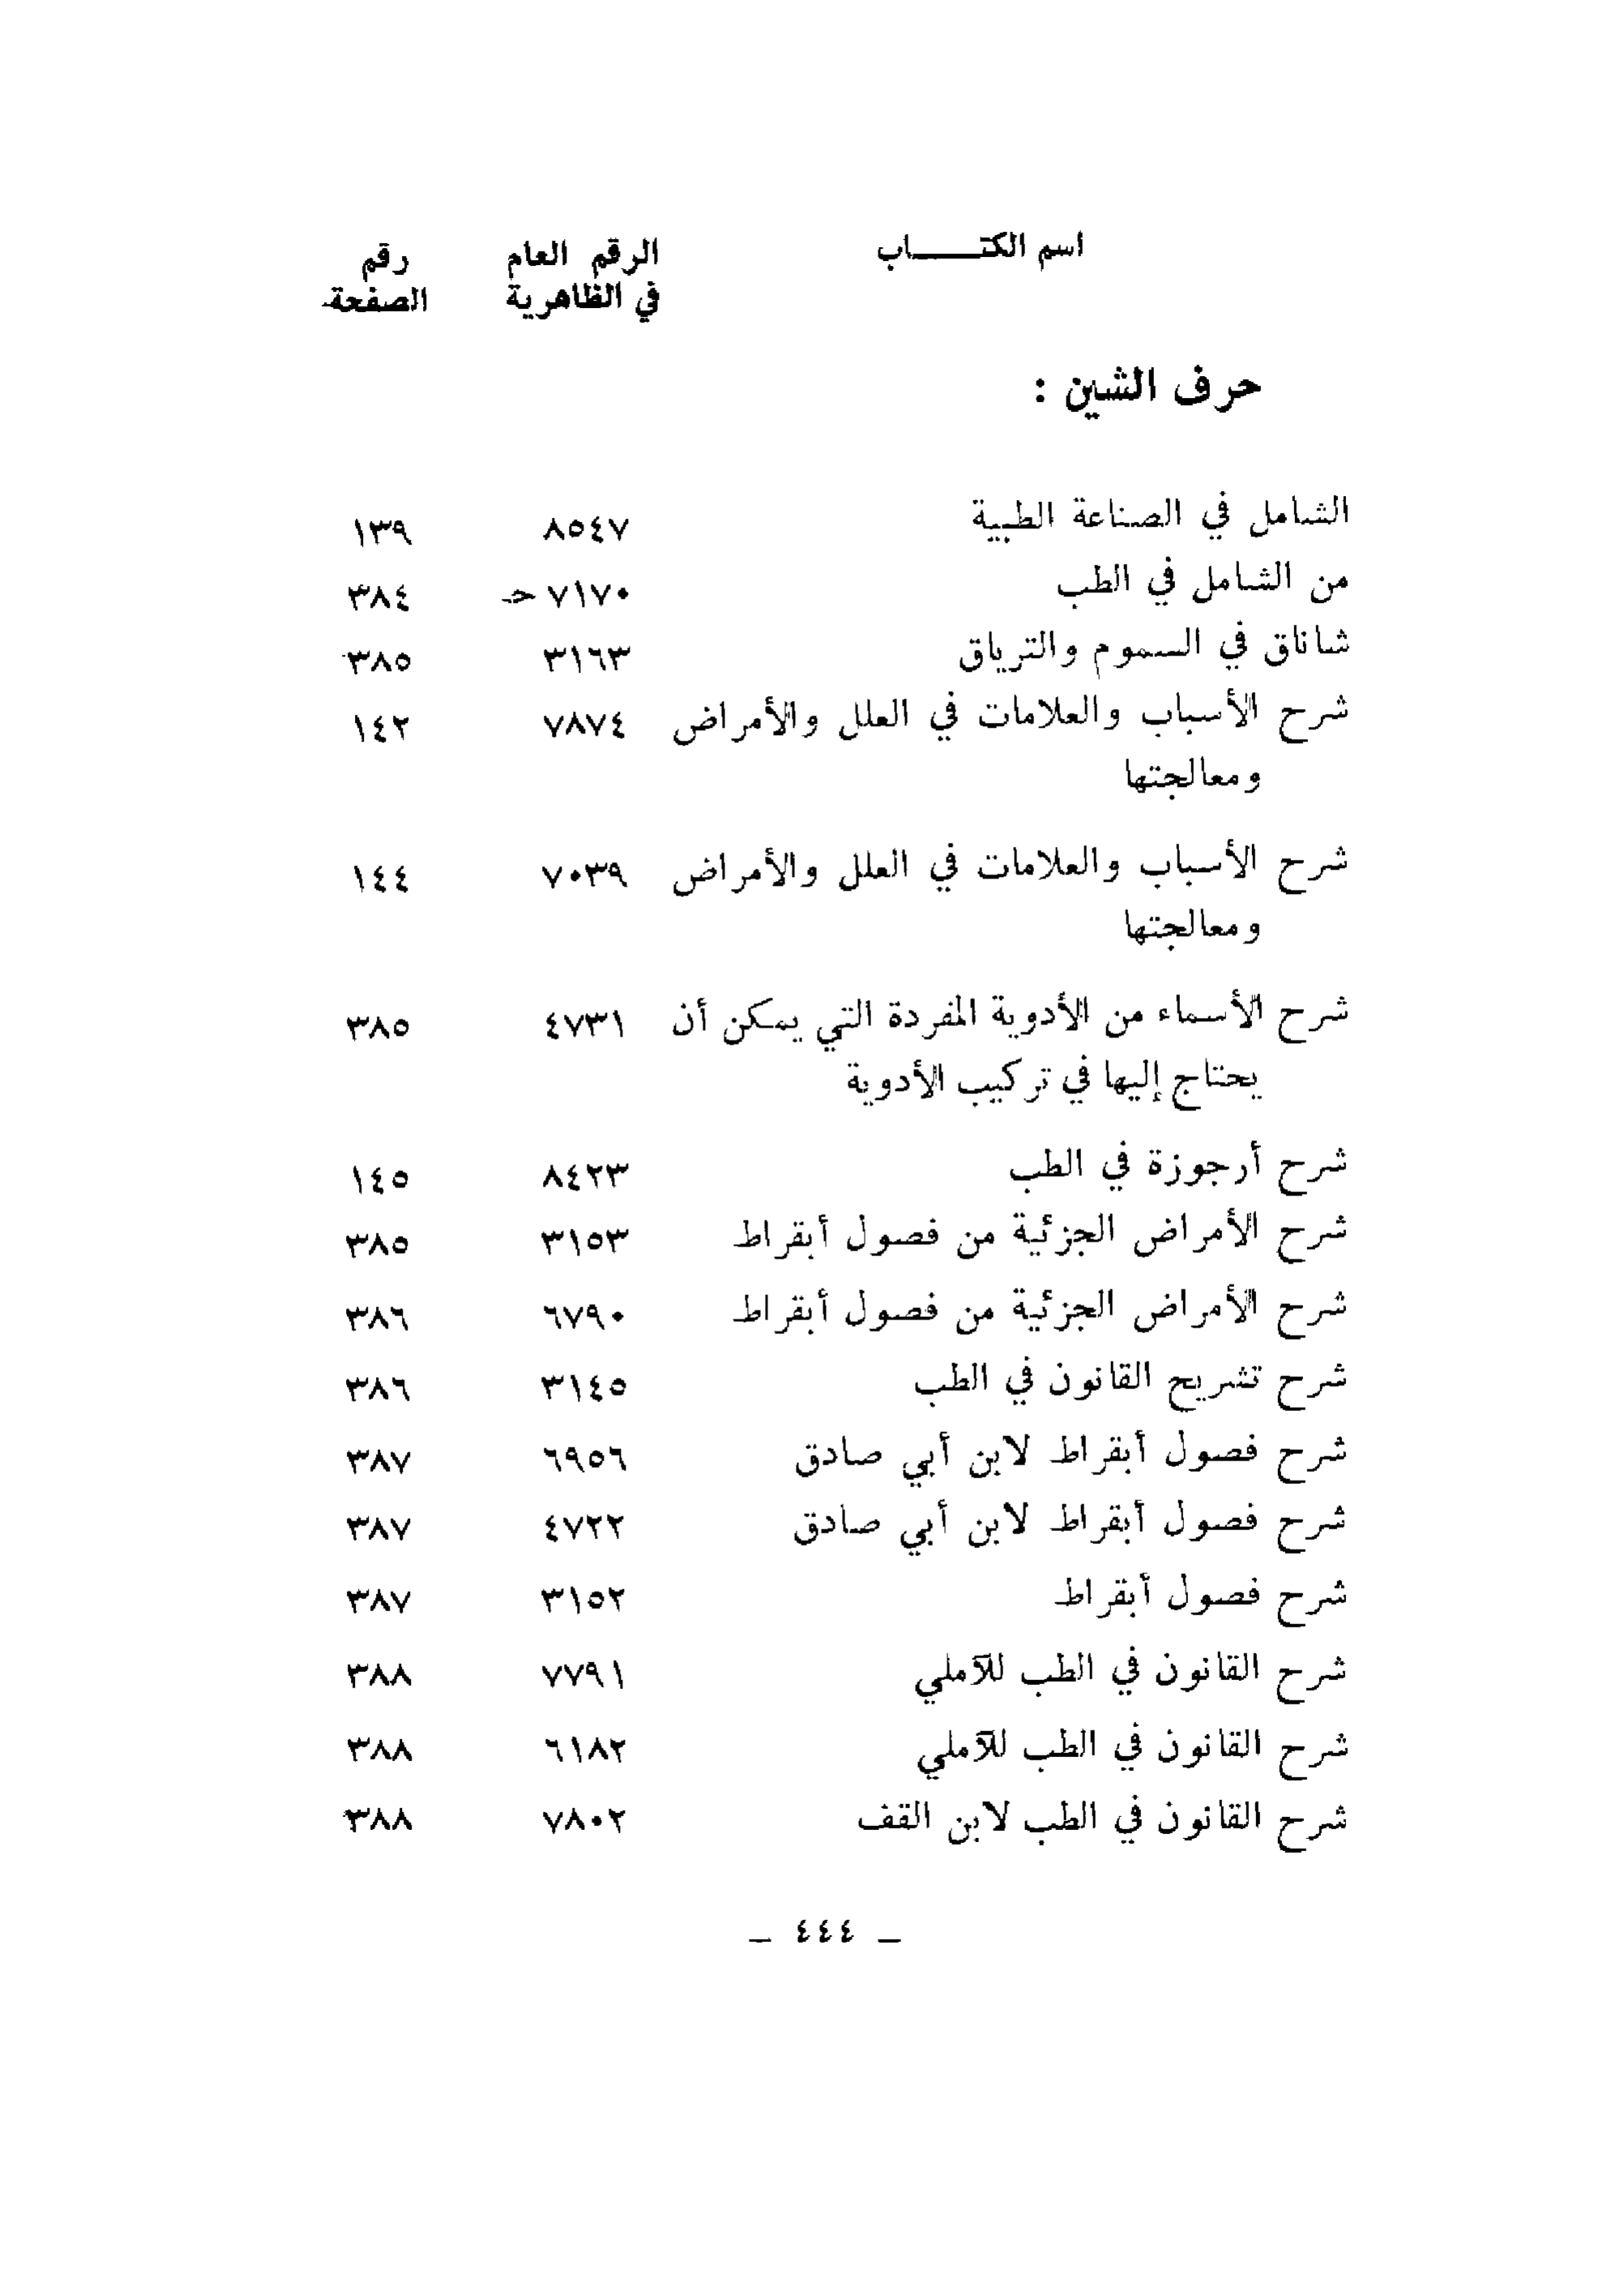 اسم الكتـــــاب الرقم العام رقم
في الظاهرية الصفحة
حرف الشين :
الشامل في الصناعة الطبية ٨٥٤٧ ١٣٩
من الشامل في الطب ٧١٧٠ حـ ٣٨٤
شاناق في السموم والترياق ٣١٦٣ ٣٨٥
شرح الأسباب والعلامات في العلل والأمراض ٧٨٧٤ ١٤٢
ومعالجتها
شرح الأسباب والعلامات في العلل والأمراض ٧٠٣٩ ١٤٤
ومعالجتها
شرح الأسماء من الأدوية المفردة التي يمكن أن ٤٧٣١ ٣٨٥
يحتاج إليها في تركيب الأدوية
شرح أرجوزة في الطب ٨٤٢٣ ١٤٥
شرح الأمراض الجزئية من فصول أبقراط ٣١٥٣ ٣٨٥
شرح الأمراض الجزئية من فصول أبقراط ٦٧٩٠ ٣٨٦
شرح تشريح القانون في الطب ٣١٤٥ ٣٨٦
شرح فصول أبقراط لابن أبي صادق ٦٩٥٦ ٣٨٧
شرح فصول أبقراط لابن أبي صادق ٤٧٢٢ ٣٨٧
شرح فصول أبقراط ٣١٥٢ ٣٨٧
شرح القانون في الطب للآملي ٧٧٩١ ٣٨٨
شرح القانون في الطب للآملي ٦١٨٢ ٣٨٨
شرح القانون في الطب لابن القف ٧٨٠٢ ٣٨٨
– ٤٤٤ –